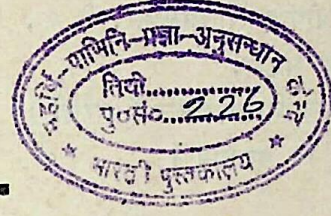 महर्षि-पाणिनि-प्रज्ञा-अनुसन्धान केन्द्र
तिथी..................
पु०सं०..226......
* भारती पुस्तकालय *